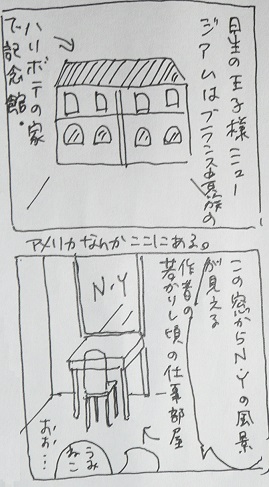 星の王子様ミュー
ジアムはフランス貴族の
ハリボテの家
で記念館。
アメリカなんかここにある。
この窓からN.Yの風景
が見える
作者の
若かりし頃の仕事部屋
N.Y
おお…
うみ
ねこ